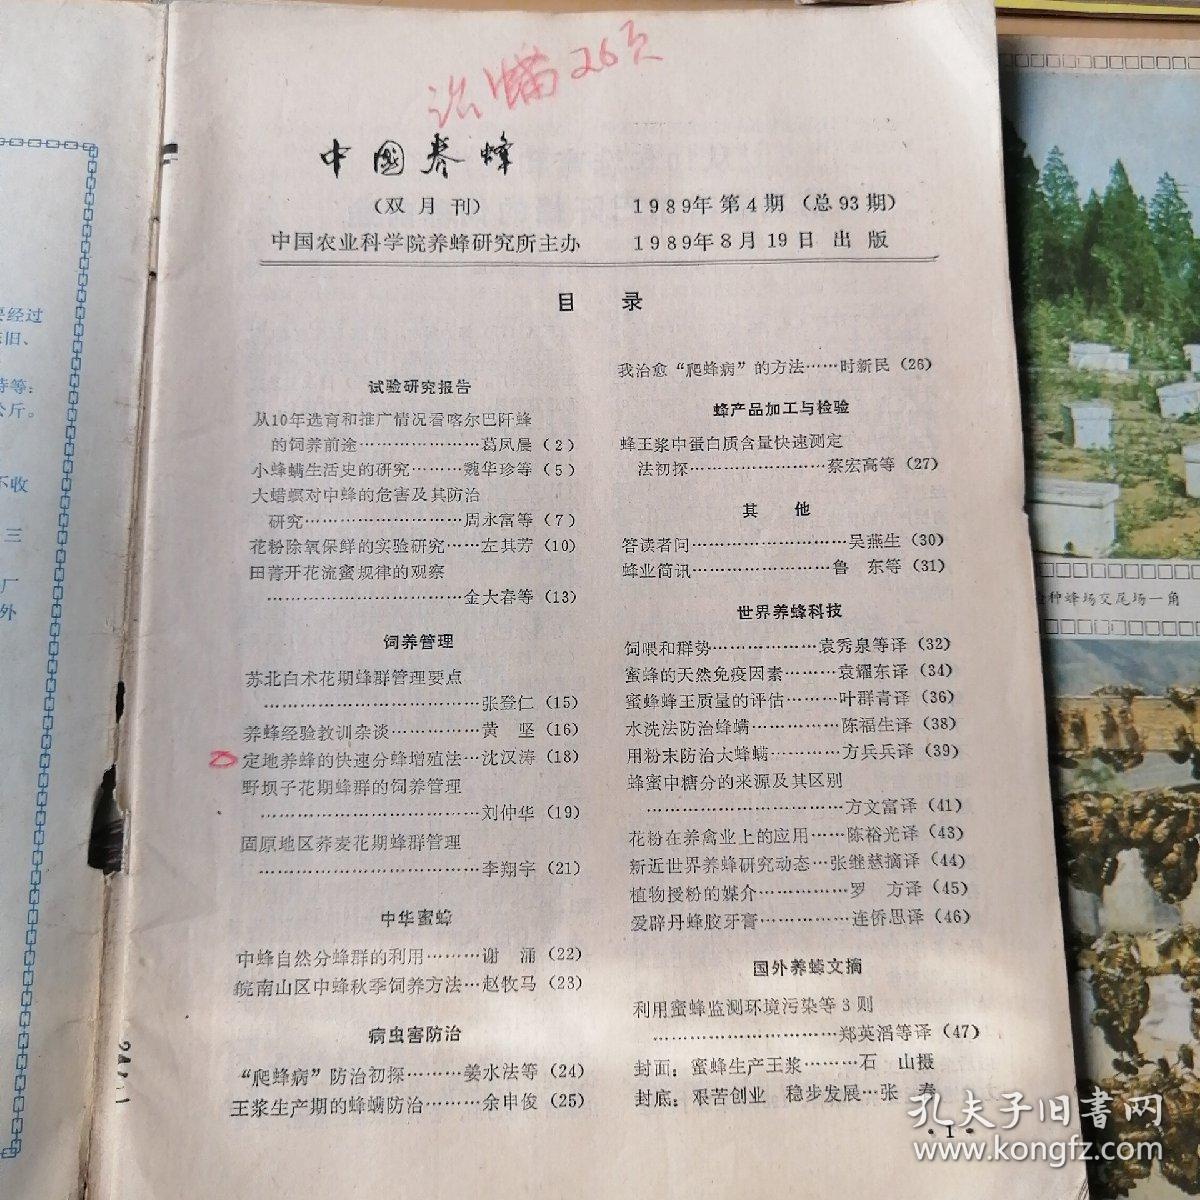 治螨26页
中国养蜂
（双月刊）
1989年第4期（总93期）
中国农业科学院养蜂研究所主办
1989年8月19日出版
目 录
试验研究报告
从10年选育和推广情况看喀尔巴阡蜂
的饲养前途…………………葛凤晨（2）
小蜂螨生活史的研究………魏华珍等（5）
大蜡螟对中蜂的危害及其防治
研究………………………周永富等（7）
花粉除氧保鲜的实验研究……左其芳（10）
田菁开花流蜜规律的观察
………………………………金大春等（13）
饲养管理
苏北白术花期蜂群管理要点
………………………………张登仁（15）
养蜂经验教训杂谈……………黄 坚（16）
定地养蜂的快速分蜂增殖法…沈汉涛（18）
野坝子花期蜂群的饲养管理
………………………………刘仲华（19）
固原地区荞麦花期蜂群管理
………………………………李翔宇（21）
中华蜜蜂
中蜂自然分蜂群的利用………谢 涌（22）
皖南山区中蜂秋季饲养方法…赵牧马（23）
病虫害防治
“爬蜂病”防治初探………姜水法等（24）
王浆生产期的蜂螨防治………余申俊（25）
我治愈“爬蜂病”的方法……时新民（26）
蜂产品加工与检验
蜂王浆中蛋白质含量快速测定
法初探……………………蔡宏高等（27）
其 他
答读者问………………………吴燕生（30）
蜂业简讯……………………鲁 东等（31）
世界养蜂科技
饲喂和群势………………袁秀泉等译（32）
蜜蜂的天然免疫因素………袁耀东译（34）
蜜蜂蜂王质量的评估………叶群青译（36）
水洗法防治蜂螨……………陈福生译（38）
用粉末防治大蜂螨…………方兵兵译（39）
蜂蜜中糖分的来源及其区别
……………………………方文富译（41）
花粉在养禽业上的应用……陈裕光译（43）
新近世界养蜂研究动态…张继慈摘译（44）
植物授粉的媒介……………罗 方译（45）
爱辟丹蜂胶牙膏……………连侨思译（46）
国外养蜂文摘
利用蜜蜂监测环境污染等3则
……………………………郑英滔等译（47）
封面：蜜蜂生产王浆………石 山摄
封底：艰苦创业 稳步发展…张 春
·1·
要经过
三
厂
外
不收
公斤。
种蜂场交尾场一角
孔夫子旧书网
www.kongfz.com